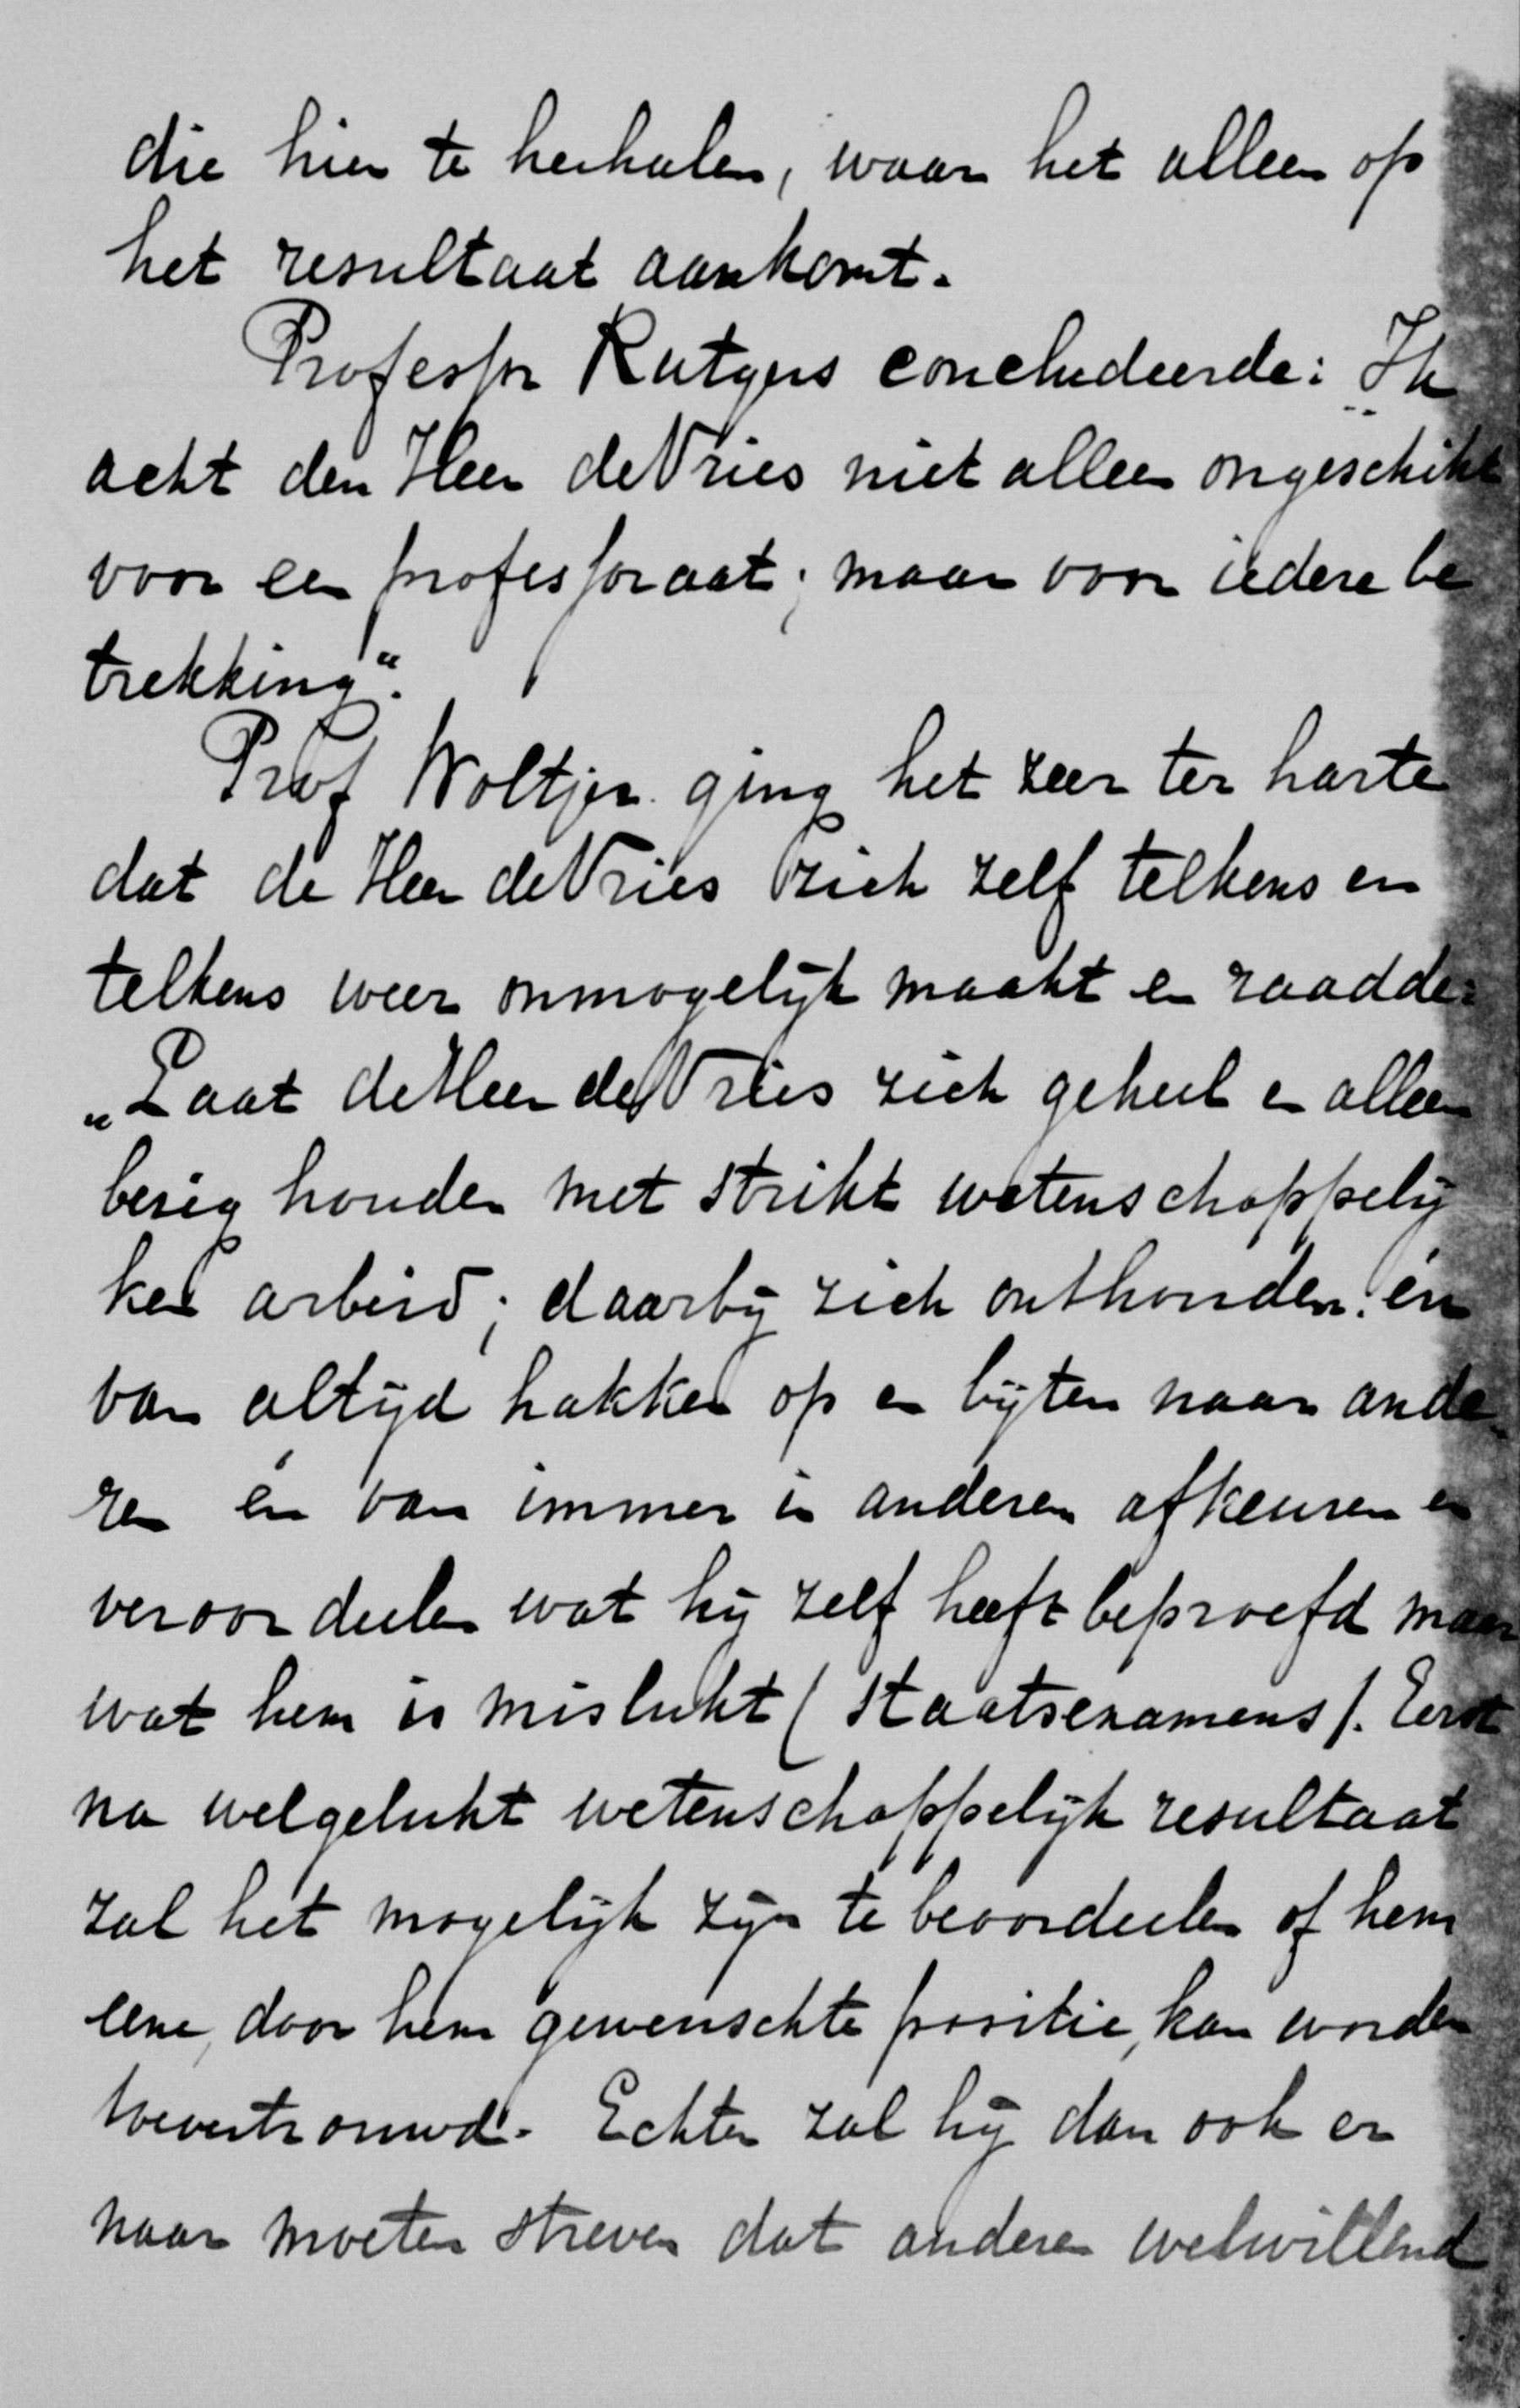 die hier te herhalen, waar het alleen op
het resultaat aankomt.
Professor Rutgers concludeerde: „Ik
acht den Heer de Vries niet alleen ongeschikt
voor een professoraat; maar voor iedere be
trekking“.
Prof Woltjer ging het zeer ter harte
dat de Heer de Vries zich zelf telkens en
telkens weer onmogelijk maakt en raadde:
„Laat de Heer de Vries zich geheel en alleen
bezig houden met strikt wetenschappelij
ken arbeid; daarbij zich onthouden: én
van altijd hakken op en bijten naar ande
ren én van immer in anderen afkeuren en
veroordeelen wat hij zelf heeft beproefd maar
wat hem is mislukt (Staatsexamens). Eerst
na welgelukt wetenschappelijk resultaat
zal het mogelijk zijn te beoordeelen of hem
eene, door hem gewenschte positie, kan worden
toevertrouwd. Echter zal hij dan ook er
naar moeten streven dat anderen welwillend